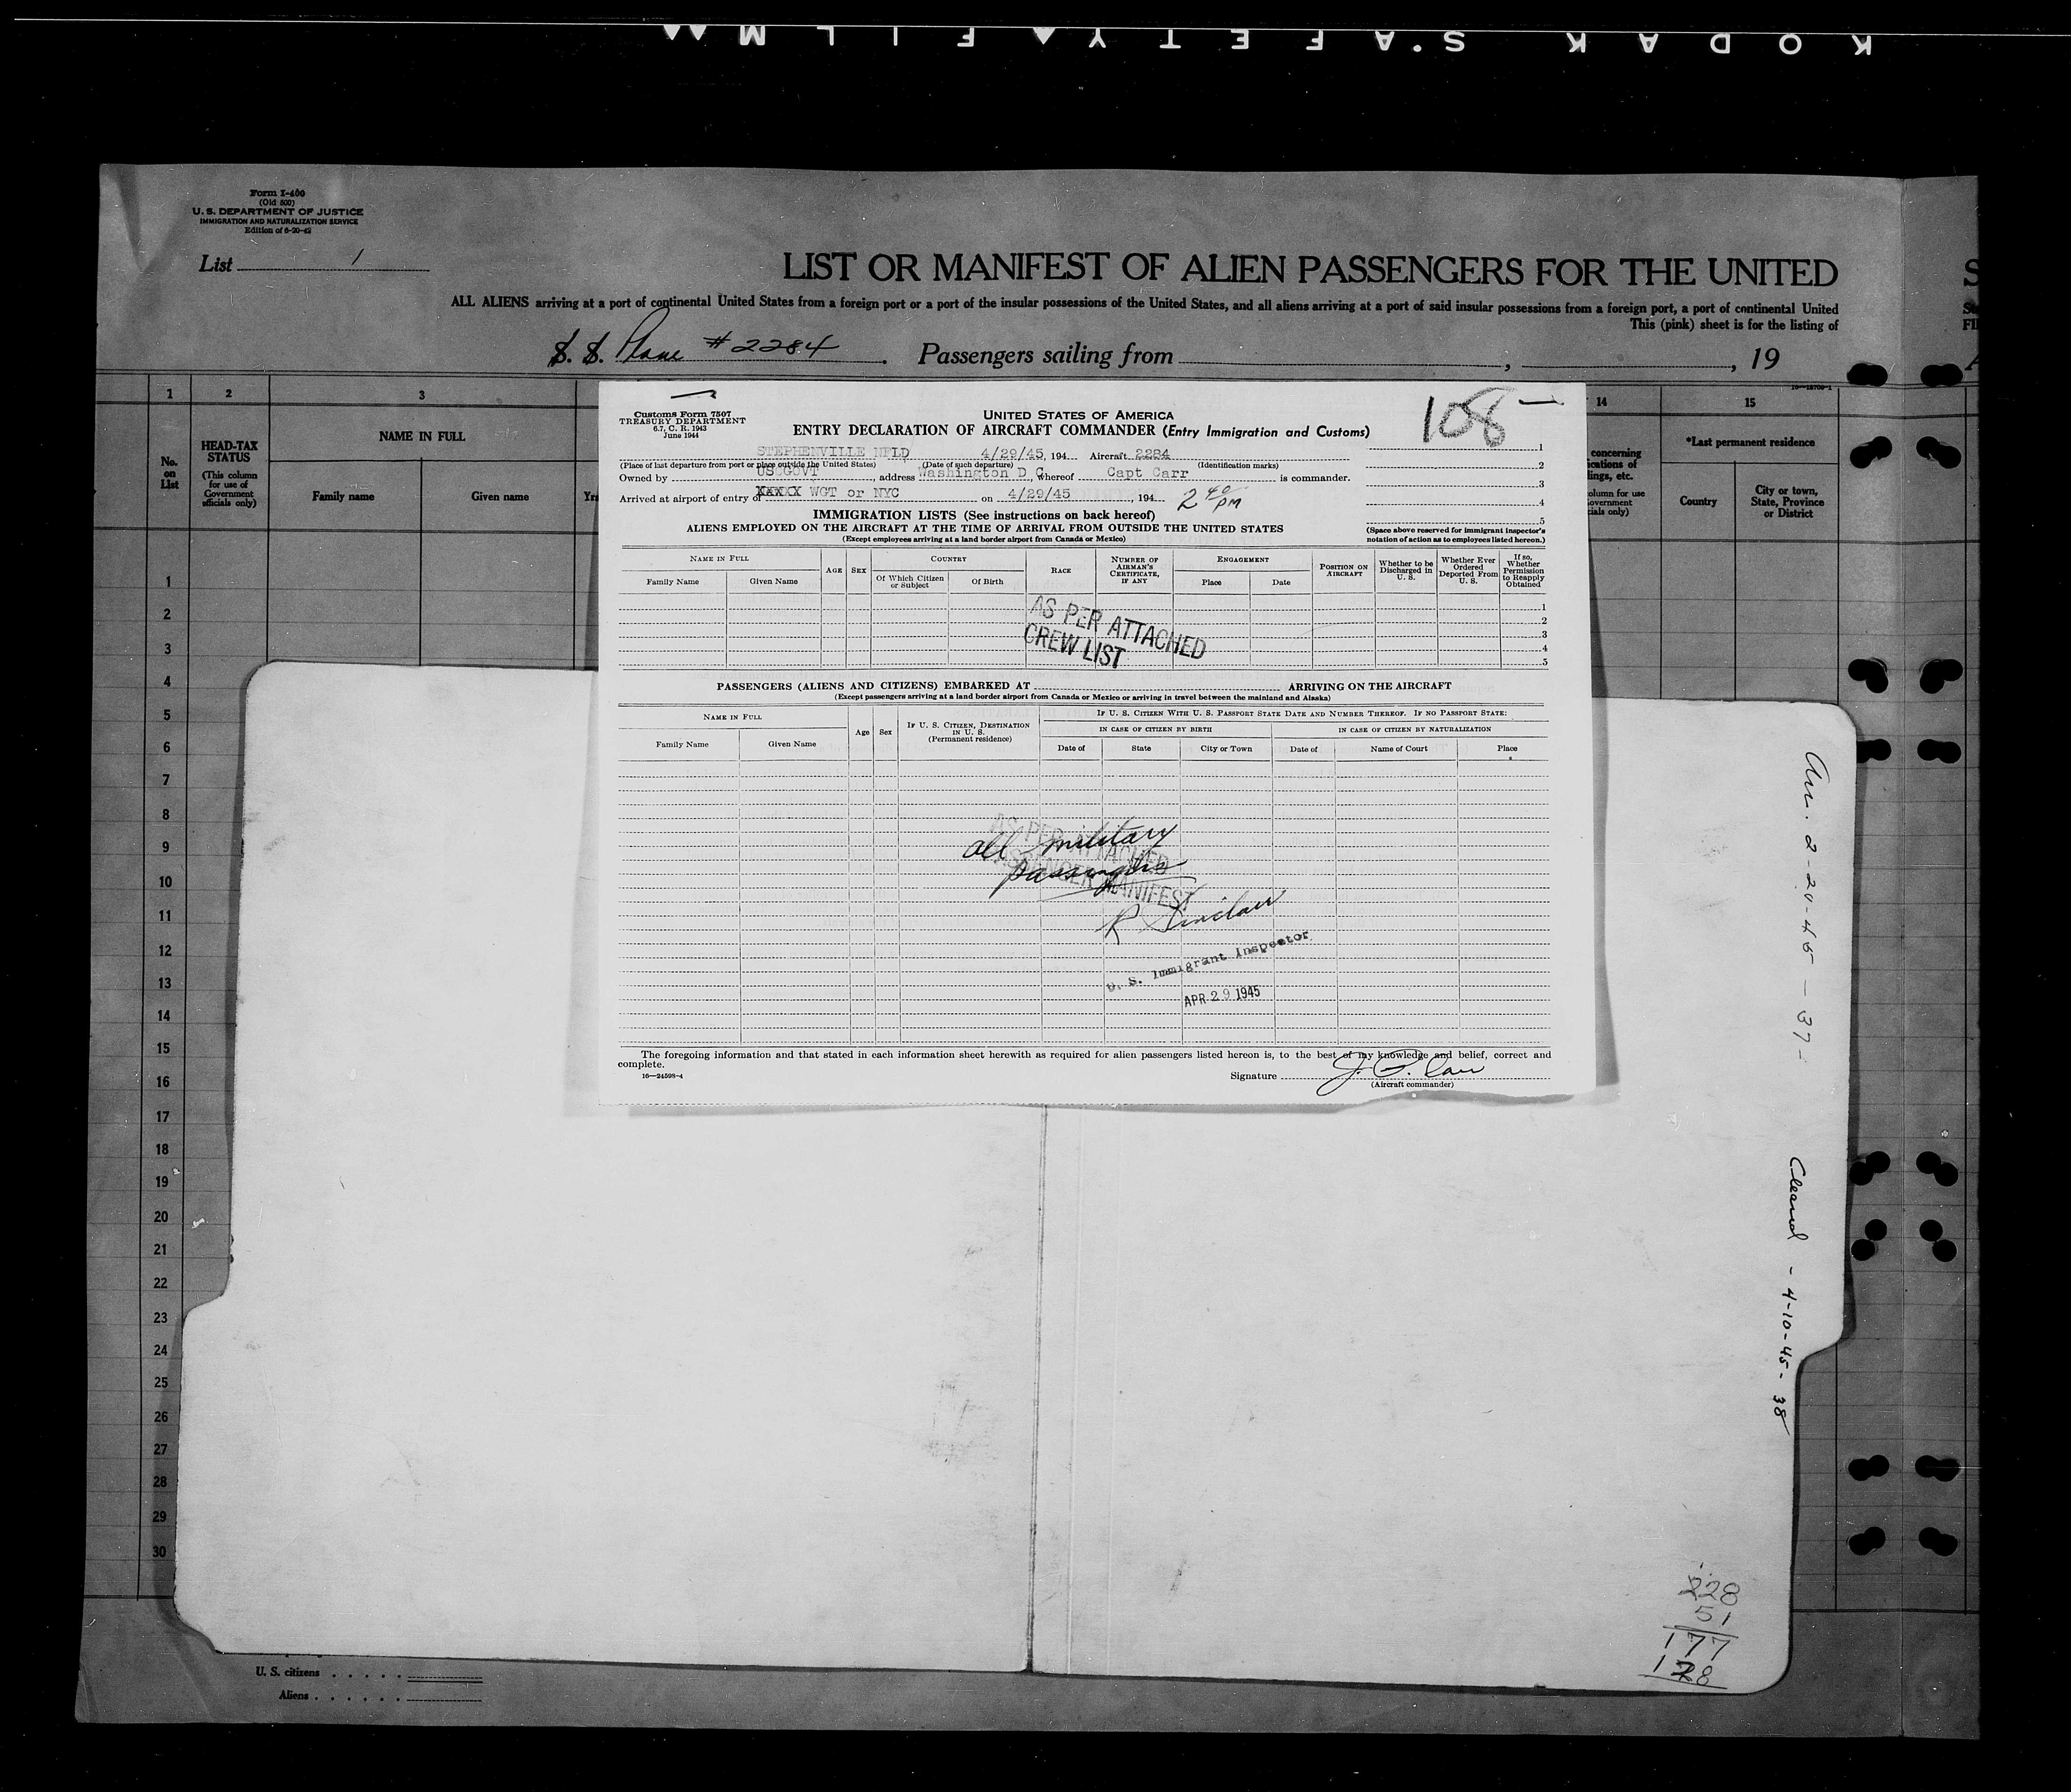 KODAK SAFETY FILM
Form I-400
(Old 500)
U. S. DEPARTMENT OF JUSTICE
IMMIGRATION AND NATURALIZATION SERVICE
Edition of 6-20-42
List 1
LIST OR MANIFEST OF ALIEN PASSENGERS FOR THE UNITED
ALL ALIENS arriving at a port of continental United States from a foreign port or a port of the insular possessions of the United States, and all aliens arriving at a port of said insular possessions from a foreign port, a port of continental United
This (pink) sheet is for the listing of
S. S. Plane # 2284. Passengers sailing from , , 19
1 2 3 14 15
HEAD-TAX STATUS
(This column for use of Government officials only)
No. on List
NAME IN FULL
Family name Given name Yrs
concerning
*Last permanent residence
Country
City or town, State, Province or District
Customs Form 7507
TREASURY DEPARTMENT
6.7, C. R. 1943
June 1944
UNITED STATES OF AMERICA
ENTRY DECLARATION OF AIRCRAFT COMMANDER (Entry Immigration and Customs)
108
STEPHENVILLE NFLD 4/29/45, 194 Aircraft 2284
(Place of last departure from port or place outside the United States) (Date of such departure) (Identification marks)
Owned by USGOVT, address Washington D C, whereof Capt Carr is commander.
Arrived at airport of entry of XXXXX WGT or NYC on 4/29/45, 194 2 40 PM
1
2
3
4
5
(Space above reserved for immigrant inspector's notation of action as to employees listed hereon.)
IMMIGRATION LISTS (See instructions on back hereof)
ALIENS EMPLOYED ON THE AIRCRAFT AT THE TIME OF ARRIVAL FROM OUTSIDE THE UNITED STATES
(Except employees arriving at a land border airport from Canada or Mexico)
NAME IN FULL
Family Name Given Name
AGE SEX
COUNTRY
Of Which Citizen or Subject Of Birth
RACE
NUMBER OF AIRMAN'S CERTIFICATE, IF ANY
ENGAGEMENT
Place Date
POSITION ON AIRCRAFT
Whether to be Discharged in U. S.
Whether Ever Ordered Deported From U. S.
If so, Whether Permission to Reapply Obtained
1
2
3
4
5
AS PER ATTACHED
CREW LIST
PASSENGERS (ALIENS AND CITIZENS) EMBARKED AT ARRIVING ON THE AIRCRAFT
(Except passengers arriving at a land border airport from Canada or Mexico or arriving in travel between the mainland and Alaska)
NAME IN FULL
Family Name Given Name
Age Sex
IF U. S. CITIZEN, DESTINATION IN U. S.
(Permanent residence)
IF U. S. CITIZEN WITH U. S. PASSPORT STATE DATE AND NUMBER THEREOF. IF NO PASSPORT STATE:
IN CASE OF CITIZEN BY BIRTH IN CASE OF CITIZEN BY NATURALIZATION
Date of State City or Town Date of Name of Court Place
AS PER ATTACHED
PASSENGER MANIFEST
all military
passengers
R Sinclair
U. S. Immigrant Inspector
APR 29 1945
The foregoing information and that stated in each information sheet herewith as required for alien passengers listed hereon is, to the best of my knowledge and belief, correct and
complete.
16—24598-4
Signature J. P. Carr
(Aircraft commander)
1
2
3
4
5
6
7
8
9
10
11
12
13
14
15
16
17
18
19
20
21
22
23
24
25
26
27
28
29
30
Arr. 2-20-45 — 37-
Cleared - 4-10-45- 38
228
51
177
128
U. S. citizens
Aliens